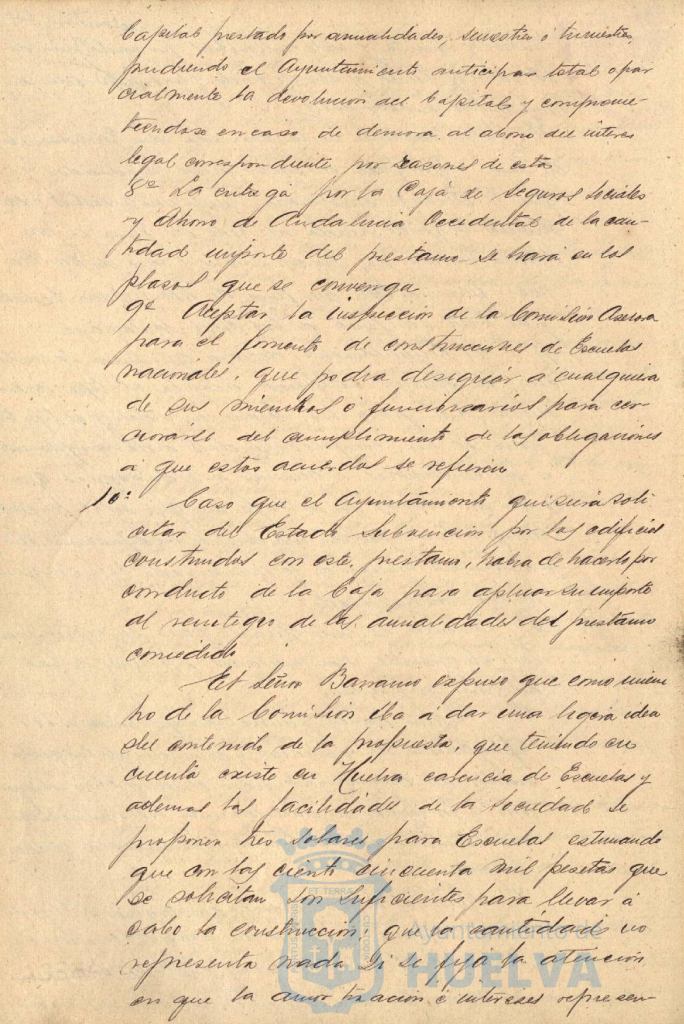 Capital prestado por anualidades, semestres ó trimestres,
pudiendo el Ayuntamiento anticipar total o par
cialmente la devolucion del Capital y comprome-
tiendose en caso de demora al abono del interes
legal correspondiente por razones de esta
8ª La entrega por la Caja de Seguros Sociales
y Ahorro de Andalucia Occidental de la can-
tidad importe del prestamo se hará en los
plazos que se convenga
9ª Aceptar la inspección de la Comisión Asesora
para el fomento de construcciones de Escuelas
nacionales, que podra designar á cualquiera
de sus miembros ó funcionarios para cer-
ciorarse del cumplimiento de las obligaciones
á que estos acuerdos se refieren
10ª Caso que el Ayuntamiento quisiera soli
citar del Estado subvencion por los edificios
construidos con este prestamo, habra de hacerlo por
conducto de la Caja para aplicar su importe
al reintegro de las anualidades del prestamo
concedido
El Señor Barranco expuso que como miem
bro de la Comision iba á dar una ligera idea
del contenido de la propuesta, que teniendo en
cuenta existe en Huelva carencia de Escuelas y
ademas las facilidades de la Sociedad se
proponen tres solares para Escuelas estimando
que con las ciento cincuenta mil pesetas que
se solicitan son suficientes para llevar á
cabo la construccion; que la cantidad no
representa nada si se fija la atención
en que la amortización é intereses represen-
Ayuntamiento de
HUELVA